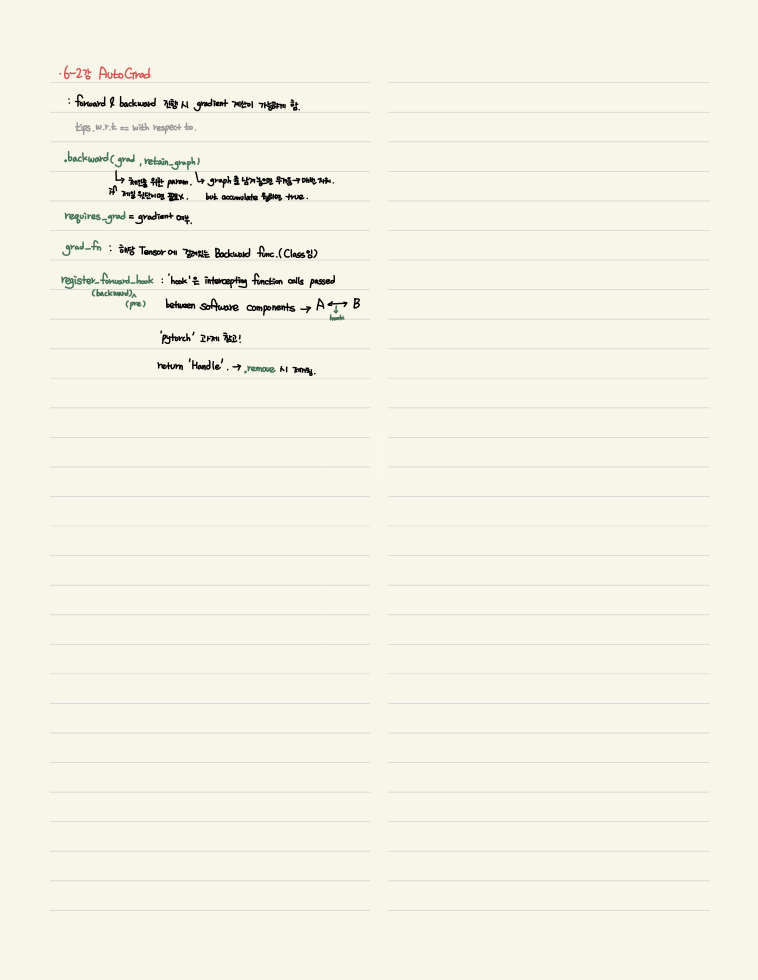 ·6-2강 AutoGrad
: forward & backward 진행 시 gradient 계산이 가능하게 함.
tips. w.r.t == with respect to.
.backward(grad , retain_graph)
↳ 체인을 위한 param. ↳ graph를 남겨놓으면 무거움→매번 지워.
제일 윗단이면 필요X. but accumulate 원하면 true.
requires_grad = gradient 여부.
grad_fn : 해당 Tensor에 걸려있는 Backward func.(Class임)
register_forward_hook : 'hook'은 intercepting function calls passed
(backward)
(pre) between software components → A ↔ B
↓
hook
'pytorch' 과제 참고!
return 'Handle'. → .remove 시 제거됨.